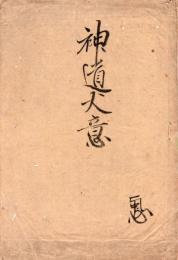 神道大意